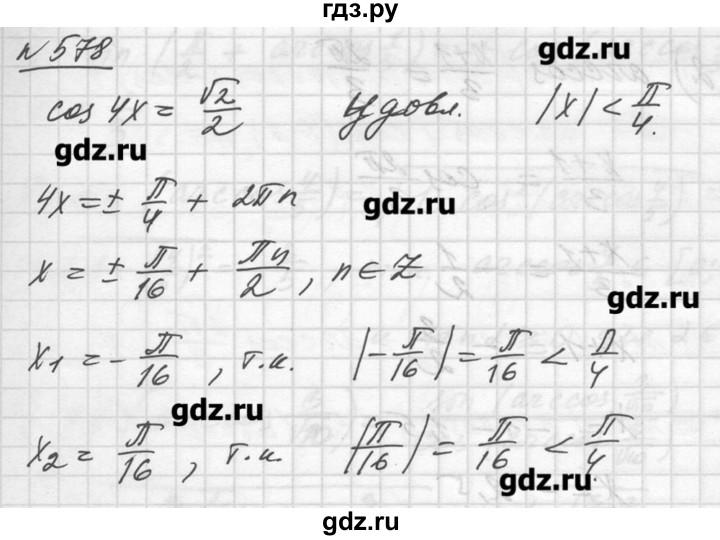 гдз.ру
№578
gdz.ru
cos 4x = √2/2 Удовл. |x| < π/4.
gdz.ru
4x = ± π/4 + 2πn
gdz.ru
x = ± π/16 + πn/2, n ∈ Z
gdz.ru
x₁ = - π/16, т.к. |- π/16| = π/16 < π/4
gdz.ru
x₂ = π/16, т.к. |π/16| = π/16 < π/4.
gdz.ru
gdz.ru